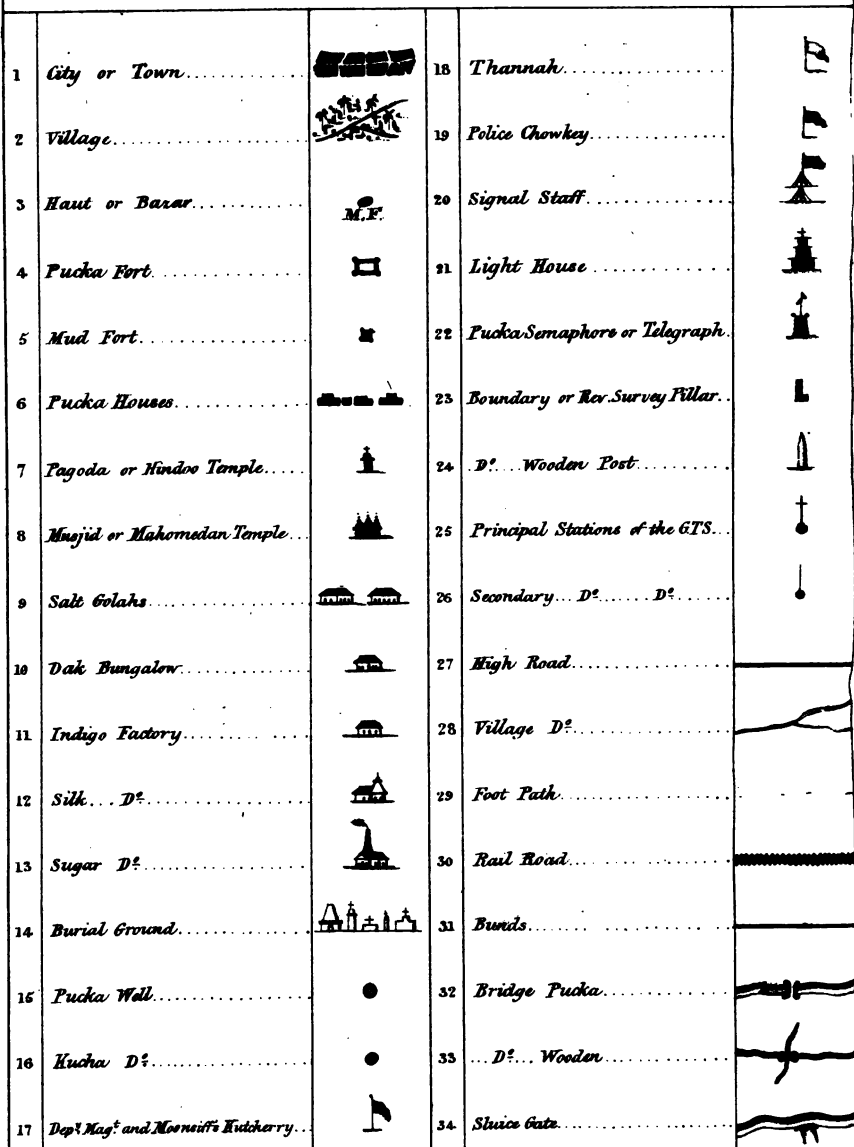 1 City or Town
2 Village
3 Haut or Bazar
M.F.
4 Pucka Fort
5 Mud Fort
6 Pucka Houses
7 Pagoda or Hindoo Temple
8 Musjid or Mahomedan Temple
9 Salt Golahs
10 Dak Bungalow
11 Indigo Factory
12 Silk... Dº
13 Sugar Dº
14 Burial Ground
15 Pucka Well
16 Kucha Dº
17 Depy Magt and Moonsiff's Kutcherry
18 Thannah
19 Police Chowkey
20 Signal Staff
21 Light House
22 Pucka Semaphore or Telegraph
23 Boundary or Rev. Survey Pillar
24 Dº Wooden Post
25 Principal Stations of the GTS
26 Secondary... Dº Dº
27 High Road
28 Village Dº
29 Foot Path
30 Rail Road
31 Bunds
32 Bridge Pucka
33 ...Dº... Wooden
34 Sluice Gate